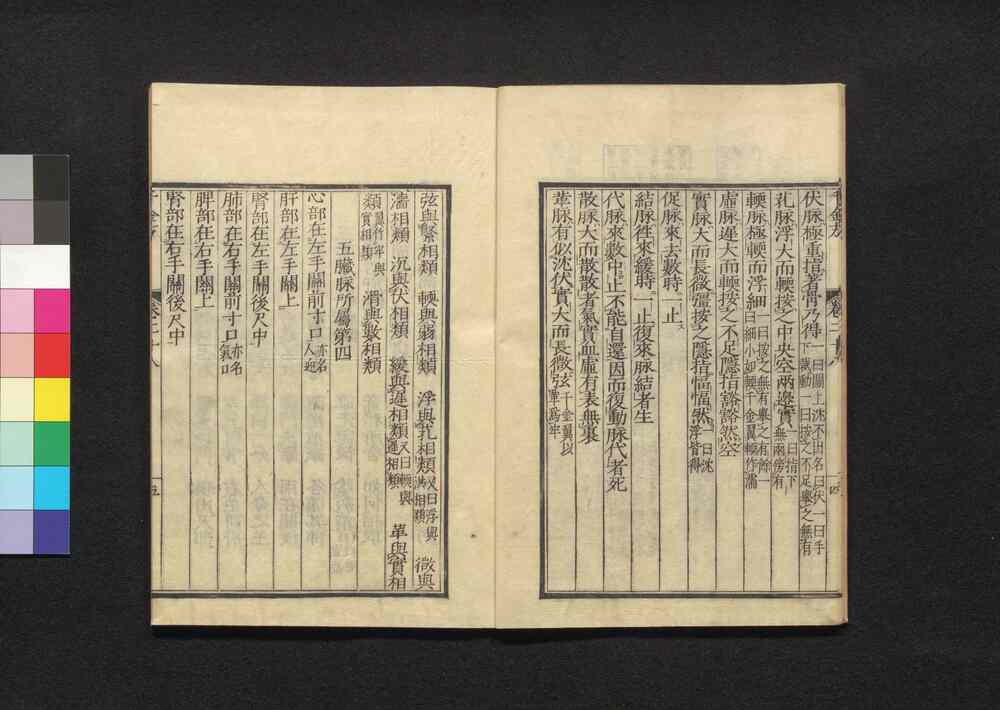 伏脉極重指著骨乃得一曰關上沈不出名曰伏一曰手下裁動一曰按之不足舉之無有
芤脉浮大而輭按之中央空兩邊實一曰指下無兩傍有
輭脉極輭而浮細一曰按之無有舉之有餘一曰細小如輭千金翼輭作濡
虛脉遲大而輭按之不足隱指豁豁然空
實脉大而長微强按之隱指愊愊然一曰沈浮皆得
促脉來去數時一止
結脉徃來緩時一止復來脉結者生
代脉來數中止不能自還因而復動脉代者死
散脉大而散散者氣實血虛有表無裏
革脉有似沈伏實大而長微弦千金翼以革爲牢
弦與緊相類 輭與弱相類 浮與芤相類又曰浮與洪相類 微與
濇相類 沉與伏相類 緩與遲相類又曰輭與遲相類 革與實相
類翼作牢與實相類 滑與數相類
五臟脉所屬第四
心部在左手關前寸口亦名人迎
肝部在左手關上
腎部在左手關後尺中
肺部在右手關前寸口亦名氣口
脾部在右手關上
腎部在右手關後尺中
五